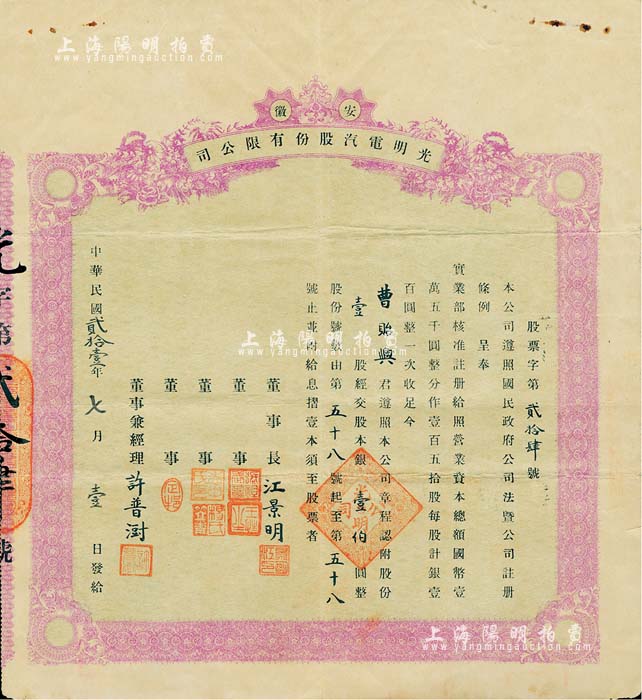 上海陽明拍賣
www.yangmingauction.com
上海陽明拍賣
www.yangmingauction.com
安徽
光明電汽股份有限公司
股票字第貳拾肆號
本公司遵照國民政府公司法暨公司註册
條例 呈奉
實業部核准註册給照營業資本總額國幣壹
萬五千圓整分作壹百五拾股每股計銀壹
百圓整一次收足今
曹昭興君遵照本公司章程認附股份
壹股經交股本銀壹佰圓整
股份號數由第五十八號起至第五十八
號止並附給息摺壹本須至股票者
董事長 江景明
董事
董事
董事
董事兼經理 許普澍
中華民國貳拾壹年七月壹日發給
光字第貳拾肆號
上海陽明拍賣
www.yangmingauction.com
上海陽明拍賣
www.yangmingauction.com